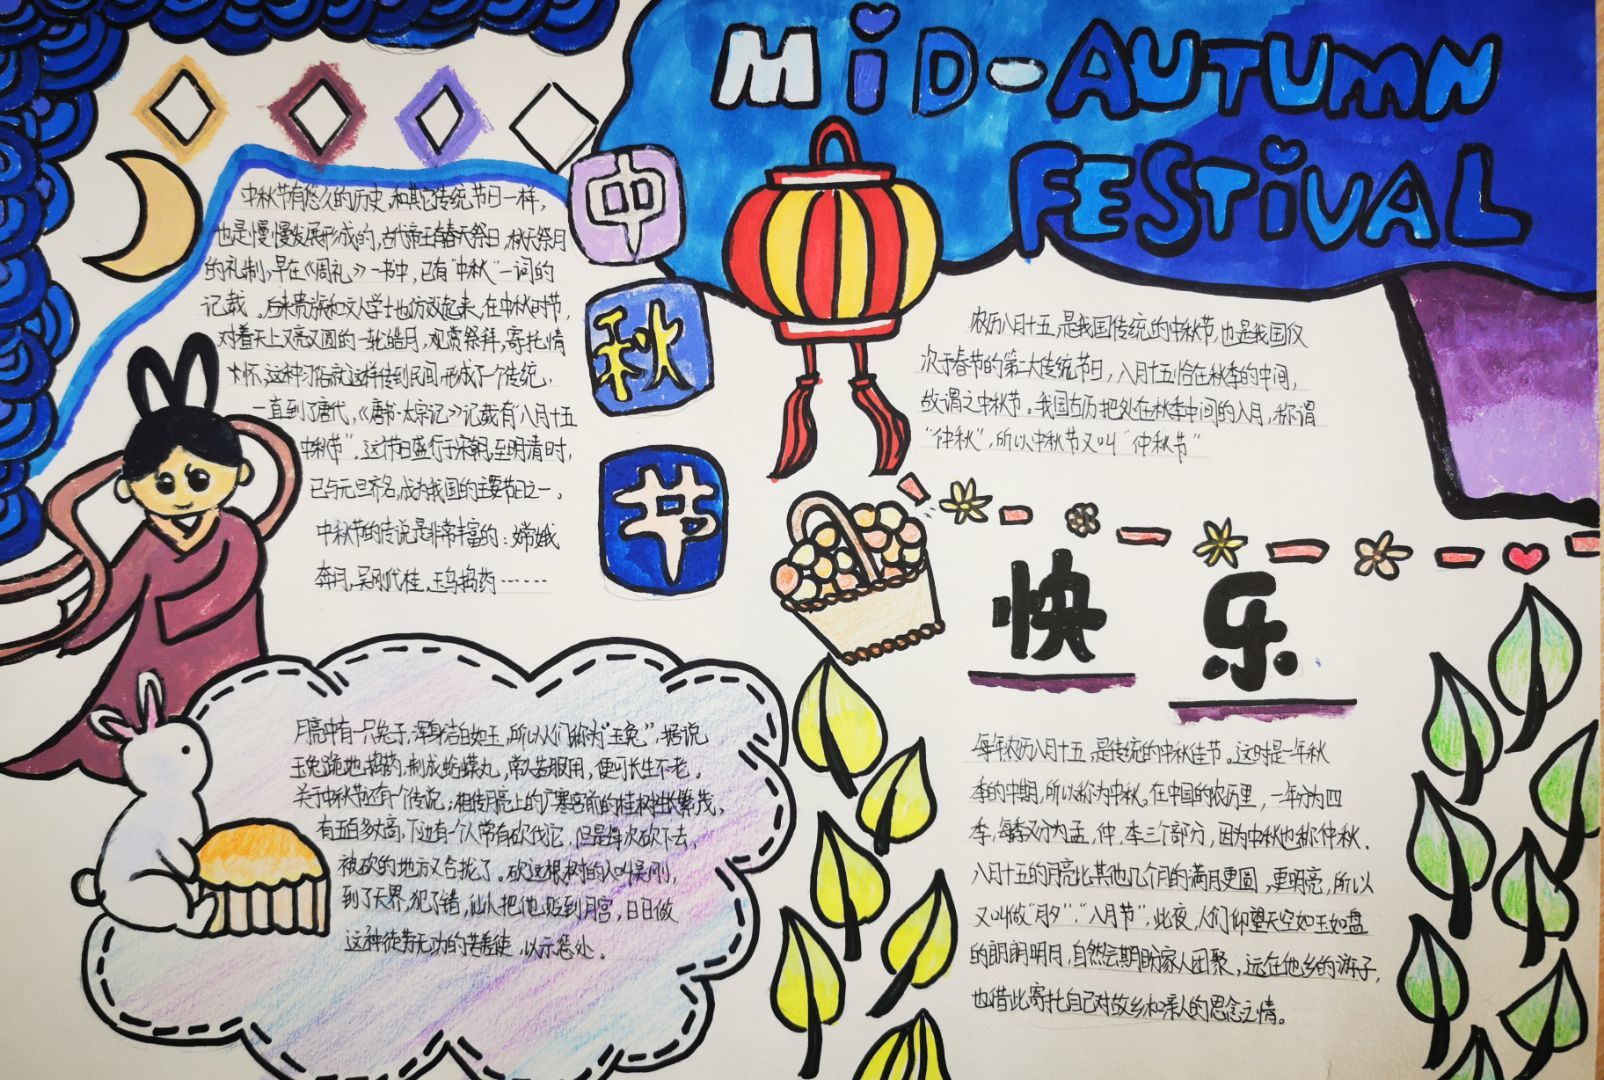 MiD-AUTUMN
FESTiVAL
中
秋
节
快
乐
中秋节有悠久的历史,和其它传统节日一样,
也是慢慢发展形成的,古代帝王有春天祭日,秋天祭月
的礼制,早在《周礼》一书中,已有"中秋"一词的
记载。后来贵族和文人学士也仿效起来,在中秋时节,
对着天上又亮又圆的一轮皓月,观赏祭拜,寄托情
怀,这种习俗就这样传到民间,形成了一个传统,
一直到了唐代,《唐书·太宗记》记载有"八月十五
中秋节"。这个节日盛行于宋朝,至明清时,
已与元旦齐名,成为我国的主要节日之一。
中秋节的传说是非常丰富的:嫦娥
奔月,吴刚伐桂,玉兔捣药……
农历八月十五,是我国传统的中秋节,也是我国仅
次于春节的第二大传统节日,八月十五恰在秋季的中间,
故谓之中秋节。我国古历把处在秋季中间的八月,称谓
"仲秋",所以中秋节又叫"仲秋节"
月亮中有一只兔子,浑身洁白如玉,所以人们称为"玉兔",据说
玉兔跪地捣药,制成蛤蟆丸,常人若服用,便可长生不老。
关于中秋节还有个传说:相传月亮上的广寒宫前的桂树生长繁茂,
有五百多丈高,下边有个人常有砍伐它,但是每次砍下去,
被砍的地方又合拢了。砍这根树的人叫吴刚,
到了天界,犯了错,仙人把他贬到月宫,日日做
这种徒劳无功的苦差使,以示惩处。
每年农历八月十五,是传统的中秋佳节。这时是一年秋
季的中期,所以称为中秋。在中国的农历里,一年分为四
季,每季又分为孟,仲,季三个部分,因为中秋也称仲秋.
八月十五的月亮比其他几个月的满月更圆,更明亮,所以
又叫做"月夕"."八月节",此夜,人们仰望天空如玉如盘
的朗朗明月,自然会期盼家人团聚,远在他乡的游子,
也借此寄托自己对故乡和亲人的思念之情。